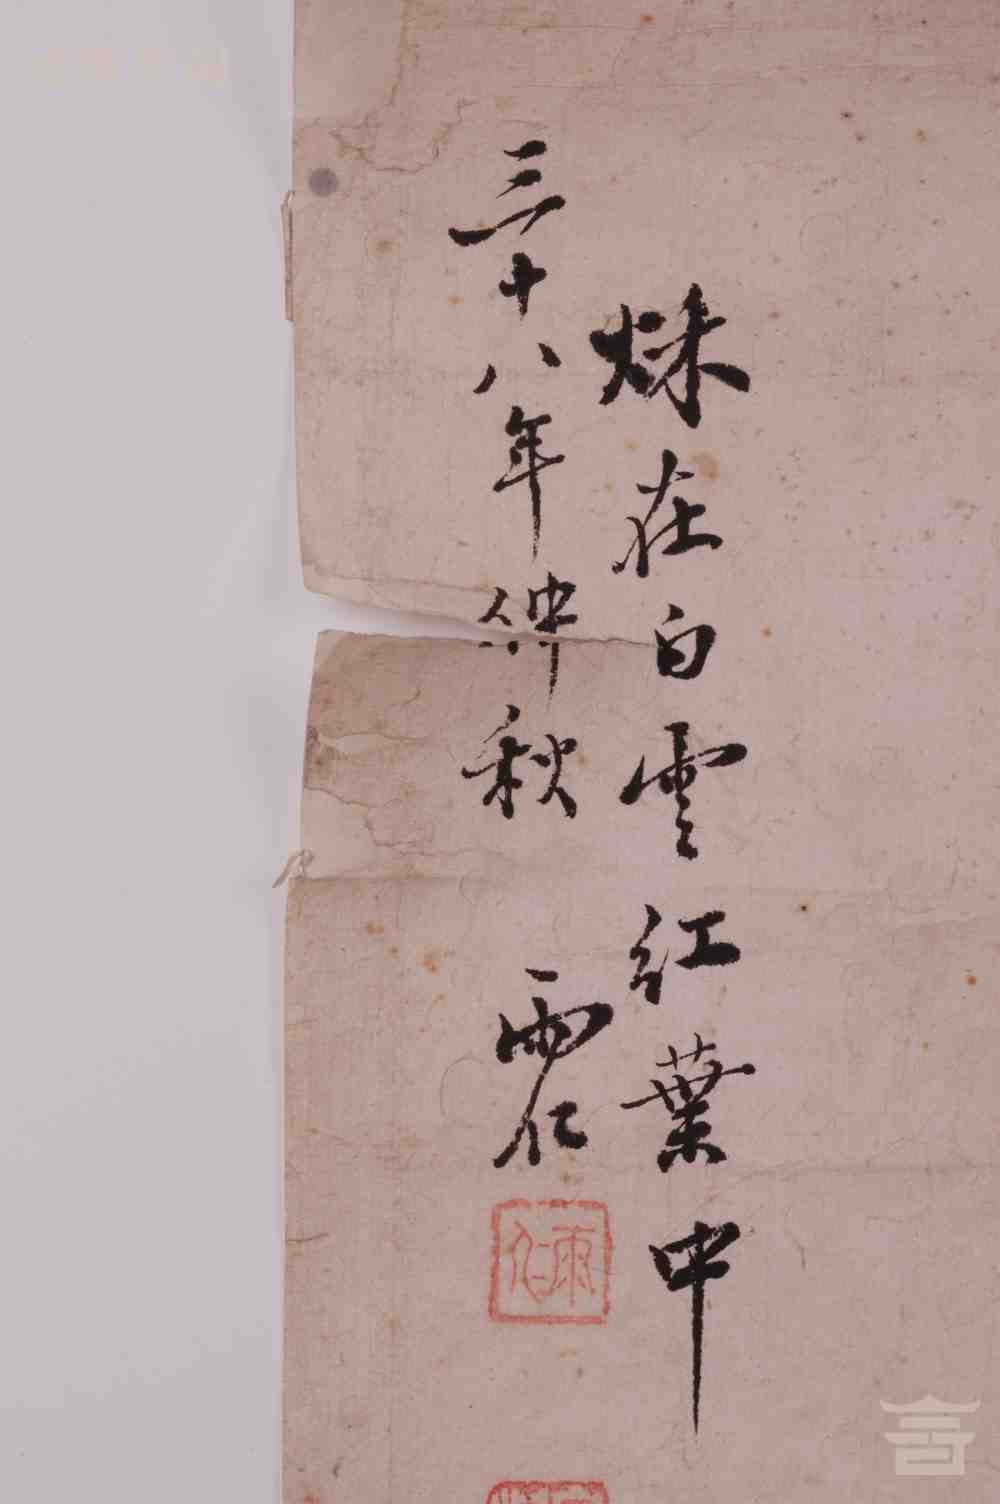 秌在白雲紅葉中
三十八年仲秋 雨仁
雨仁